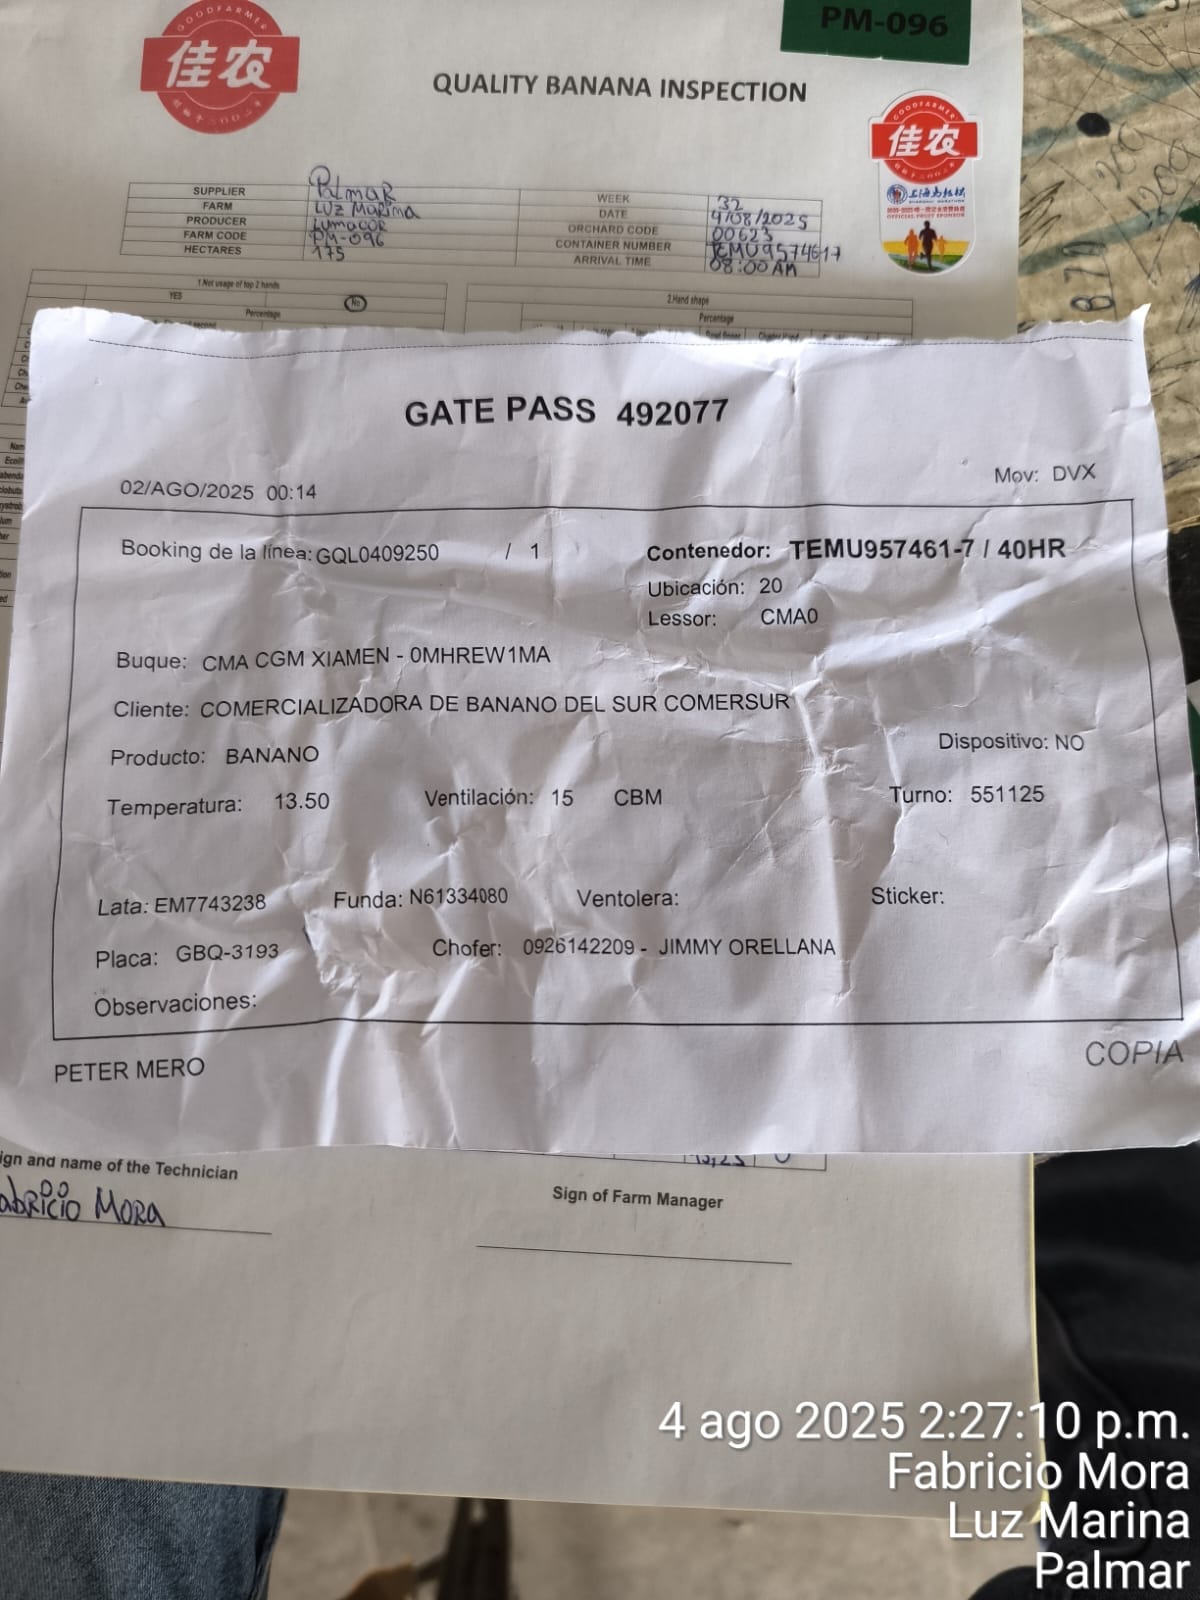 PM-096
GOODFARMER
佳农
QUALITY BANANA INSPECTION
GOODFARMER
佳农
上海马拉松
SHANGHAI MARATHON
OFFICIAL FRUIT SPONSOR
SUPPLIER PalmaR
FARM Luz Marina
PRODUCER Lumacor
FARM CODE PM-096
HECTARES 175
WEEK 32
DATE 4/08/2025
ORCHARD CODE 00623
CONTAINER NUMBER TEMU9574617
ARRIVAL TIME 08:00 AM
1.Not usage of top 2 hands
YES No
Percentage
2.Hand shape
Percentage
GATE PASS 492077
02/AGO/2025 00:14
Mov: DVX
Booking de la línea: GQL0409250 / 1
Contenedor: TEMU957461-7 / 40HR
Ubicación: 20
Lessor: CMA0
Buque: CMA CGM XIAMEN - 0MHREW1MA
Cliente: COMERCIALIZADORA DE BANANO DEL SUR COMERSUR
Producto: BANANO
Dispositivo: NO
Temperatura: 13.50 Ventilación: 15 CBM Turno: 551125
Lata: EM7743238 Funda: N61334080 Ventolera: Sticker:
Placa: GBQ-3193 Chofer: 0926142209 - JIMMY ORELLANA
Observaciones:
PETER MERO
COPIA
ign and name of the Technician
abRicio MoRa
Sign of Farm Manager
4 ago 2025 2:27:10 p.m.
Fabricio Mora
Luz Marina
Palmar